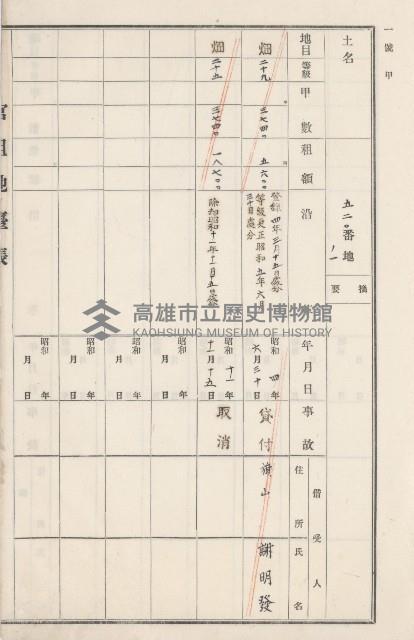 一號甲
土名
五二〇番地ノ一
摘要
地目 等級 甲數 租額 沿革
年月日 事故 借受人 住所 氏名
畑 二十九 三七四〇 五六〇〇
登錄四年三月十五日處分
等級更正昭和五年六月三十日處分
昭和四年六月三十日 貸付 旗山 謝明發
畑 二十五 三七四〇 一八七〇〇
除却昭和十一年十一月十五日處分
昭和十一年十一月十五日 取消
昭和 年 月 日
昭和 年 月 日
昭和 年 月 日
昭和 年 月 日
官租地臺帳
高雄市立歷史博物館
KAOHSIUNG MUSEUM OF HISTORY